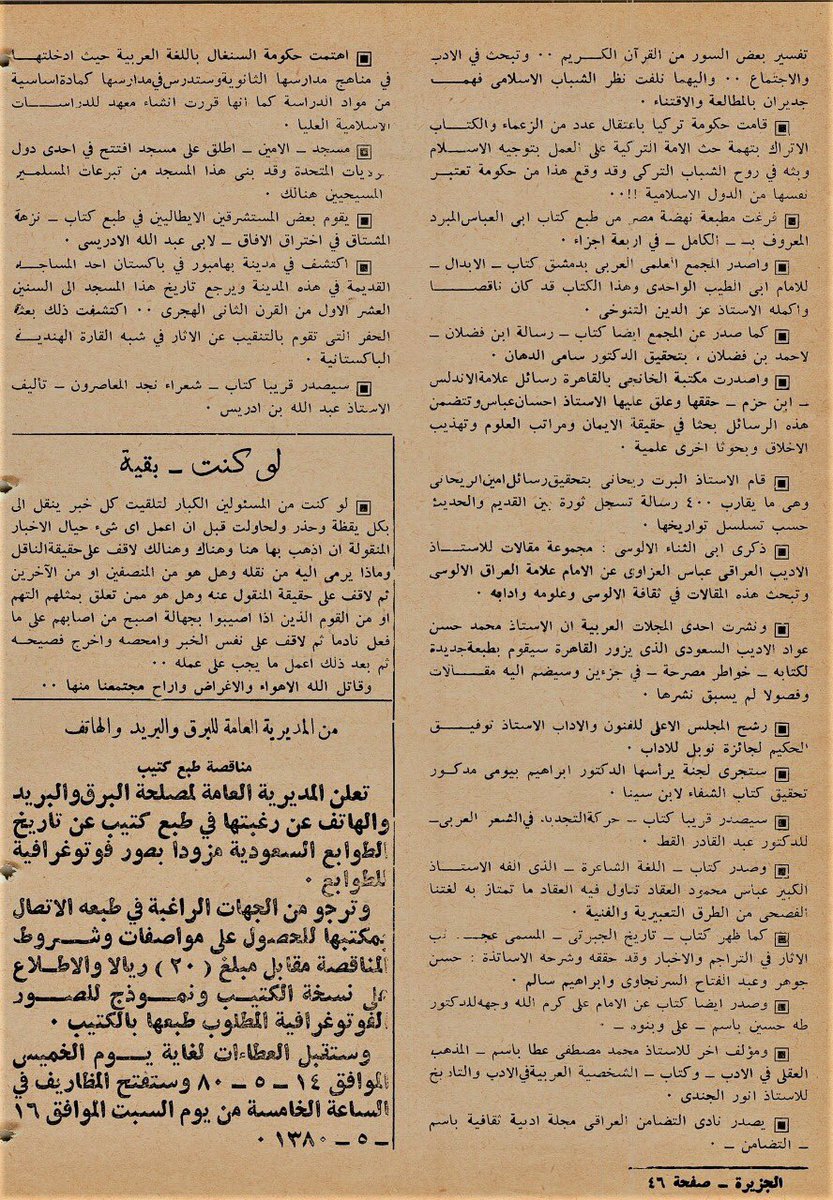 تفسير بعض السور من القرآن الكريم ٠٠ وتبحث في الادب
والاجتماع ٠٠ واليهما نلفت نظر الشباب الاسلامى فهما
جديران بالمطالعة والاقتناء ٠
▣ قامت حكومة تركيا باعتقال عدد من الزعماء والكتاب
الاتراك بتهمة حث الامة التركية على العمل بتوجيه الاسلام
وبثه في روح الشباب التركى وقد وقع هذا من حكومة تعتبر
نفسها من الدول الاسلامية !!٠٠
▣ فرغت مطبعة نهضة مصر من طبع كتاب ابى العباس المبرد
المعروف بـ ـ الكامل ـ في اربعة اجزاء ٠
▣ واصدر المجمع العلمى العربى بدمشق كتاب ـ الابدال ـ
للامام ابى الطيب الواحدى وهذا الكتاب قد كان ناقصا
واكمله الاستاذ عز الدين التنوخى ٠
▣ كما صدر عن المجمع ايضا كتاب ـ رسالة ابن فضلان ـ
لاحمد بن فضلان ، بتحقيق الدكتور سامى الدهان ٠
▣ واصدرت مكتبة الخانجى بالقاهرة رسائل علامة الاندلس
ـ ابن حزم ـ حققها وعلق عليها الاستاذ احسان عباس وتتضمن
هذه الرسائل بحثا في حقيقة الايمان ومراتب العلوم وتهذيب
الاخلاق وبحوثا اخرى علمية ٠
▣ قام الاستاذ البرت ريحانى بتحقيق رسائل امين الريحانى
وهى ما يقارب ٤٠٠ رسالة تسجل ثورة بين القديم والحديث
حسب تسلسل تواريخها ٠
▣ ذكرى ابى الثناء الالوسى : مجموعة مقالات للاستاذ
الاديب العراقى عباس العزاوى عن الامام علامة العراق الالوسى
وتبحث هذه المقالات في ثقافة الالوسى وعلومه وادابه ٠
▣ ونشرت احدى المجلات العربية ان الاستاذ محمد حسن
عواد الاديب السعودى الذى يزور القاهرة سيقوم بطبعة جديدة
لكتابه ـ خواطر مصرحة ـ في جزءين وسيضم اليه مقالات
وفصولا لم يسبق نشرها ٠
▣ رشح المجلس الاعلى للفنون والاداب الاستاذ توفيق
الحكيم لجائزة نوبل للاداب ٠
▣ ستجرى لجنة يرأسها الدكتور ابراهيم بيومى مدكور
تحقيق كتاب الشفاء لابن سينا ٠
▣ سيصدر قريبا كتاب ـ حركة التجديد في الشعر العربى ـ
للدكتور عبد القادر القط ٠
▣ وصدر كتاب ـ اللغة الشاعرة ـ الذى الفه الاستاذ
الكبير عباس محمود العقاد تناول فيه العقاد ما تمتاز به لغتنا
الفصحى من الطرق التعبيرية والفنية ٠
▣ كما ظهر كتاب ـ تاريخ الجبرتى ـ المسمى
الآثار في التراجم والاخبار وقد حققه وشرحه الاساتذة : حسن
جوهر وعبد الفتاح السرنجاوى وابراهيم سالم ٠
▣ وصدر ايضا كتاب عن الامام على كرم الله وجهه للدكتور
طه حسين باسم ـ على وبنوه ـ ٠
▣ ومؤلف اخر للاستاذ محمد مصطفى عطا باسم ـ المذهب
العقلى في الادب ـ وكتاب ـ الشخصية العربية في الادب والتاريخ
للاستاذ انور الجندى ٠
▣ يصدر نادى التضامن العراقى مجلة ادبية ثقافية باسم
ـ التضامن ـ ٠
▣ اهتمت حكومة السنغال باللغة العربية حيث ادخلتها
في مناهج مدارسها الثانوية وستدرس في مدارسها كمادة اساسية
من مواد الدراسة كما انها قررت انشاء معهد للدراسات
الاسلامية العليا ٠
▣ مسجد ـ الامين ـ اطلق على مسجد افتتح في احدى دول
المتحدة وقد بنى هذا المسجد من تبرعات المسلمين
المسيحيين هنالك ٠
▣ يقوم بعض المستشرقين الايطاليين في طبع كتاب ـ نزهة
المشتاق في اختراق الافاق ـ لابى عبد الله الادريسى ٠
▣ اكتشف في مدينة بهامبور في باكستان احد المساجد
القديمة في هذه المدينة ويرجع تاريخ هذا المسجد الى السنين
العشر الاول من القرن الثانى الهجرى ٠٠ اكتشفت ذلك بعثة
الحفر التى تقوم بالتنقيب عن الاثار في شبه القارة الهندية
الباكستانية ٠
▣ سيصدر قريبا كتاب ـ شعراء نجد المعاصرون ـ تأليف
الاستاذ عبد الله بن ادريس ٠
لو كنت ـ بقية
▣ لو كنت من المسئولين الكبار لتلقيت كل خبر ينقل الى
بكل يقظة وحذر ولحاولت قبل ان اعمل اى شىء حيال الاخبار
المنقولة ان اذهب بها هنا وهناك وهنالك لاقف على حقيقة الناقل
وماذا يرمى اليه من نقله وهل هو من المنصفين او من الآخرين
ثم لاقف على حقيقة المنقول عنه وهل هو ممن تعلق بمثلهم التهم
او من القوم الذين اذا اصيبوا بجهالة اصبح من اصابهم على ما
فعل نادما ثم لاقف على نفس الخبر وامحصه واخرج فصيحه
ثم بعد ذلك اعمل ما يجب على عمله ٠٠
وقاتل الله الاهواء والاغراض واراح مجتمعنا منها ٠٠
من المديرية العامة للبرق والبريد والهاتف
مناقصة طبع كتيب
تعلن المديرية العامة لمصلحة البرق والبريد
والهاتف عن رغبتها في طبع كتيب عن تاريخ
الطوابع السعودية مزودا بصور فوتوغرافية
للطوابع ٠
وترجو من الجهات الراغبة في طبعه الاتصال
بمكتبها للحصول على مواصفات وشروط
المناقصة مقابل مبلغ ( ٢٠ ) ريالا والاطلاع
على نسخة الكتيب ونموذج للصور
الفوتوغرافية المطلوب طبعها بالكتيب ٠
وستقبل العطاءات لغاية يوم الخميس
الموافق ١٤ ـ ٥ ـ ٨٠ وستفتح المظاريف في
الساعة الخامسة من يوم السبت الموافق ١٦
ـ ٥ ـ ١٣٨٠ ٠
الجزيرة ـ صفحة ٤٦